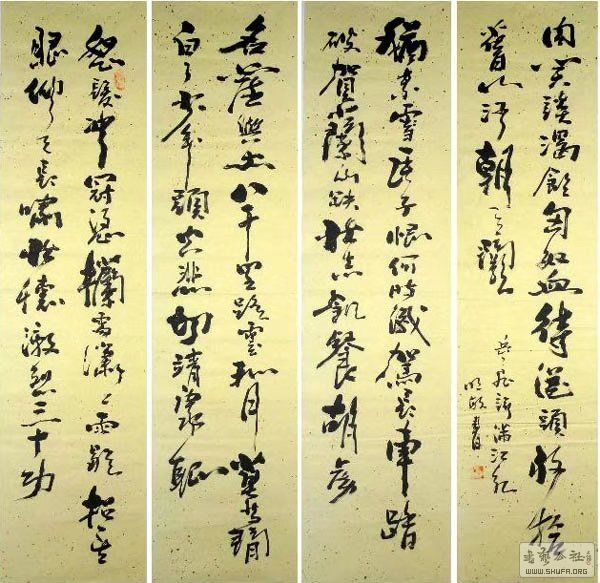 怒髮冲冠憑欄處瀟々雨歇抬望
眼仰天長嘯壯懷激烈三十功
名塵與土八千里路雲和月莫等閒
白了少年頭空悲切靖康恥
猶未雪臣子恨何時滅駕長車踏
破賀蘭山缺壯志飢餐胡虜
肉笑談渴飲匈奴血待從頭收拾
舊山河朝天闕
岳飛詞滿江紅
書
WWW.SHUFA.ORG